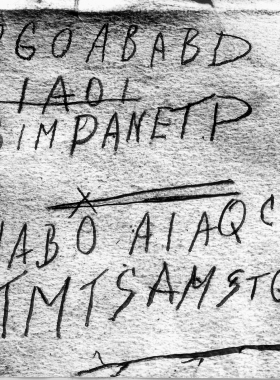 GOABABD
IAOI
BIMPANETP
IABO AIAQC
TMTSAMSTG